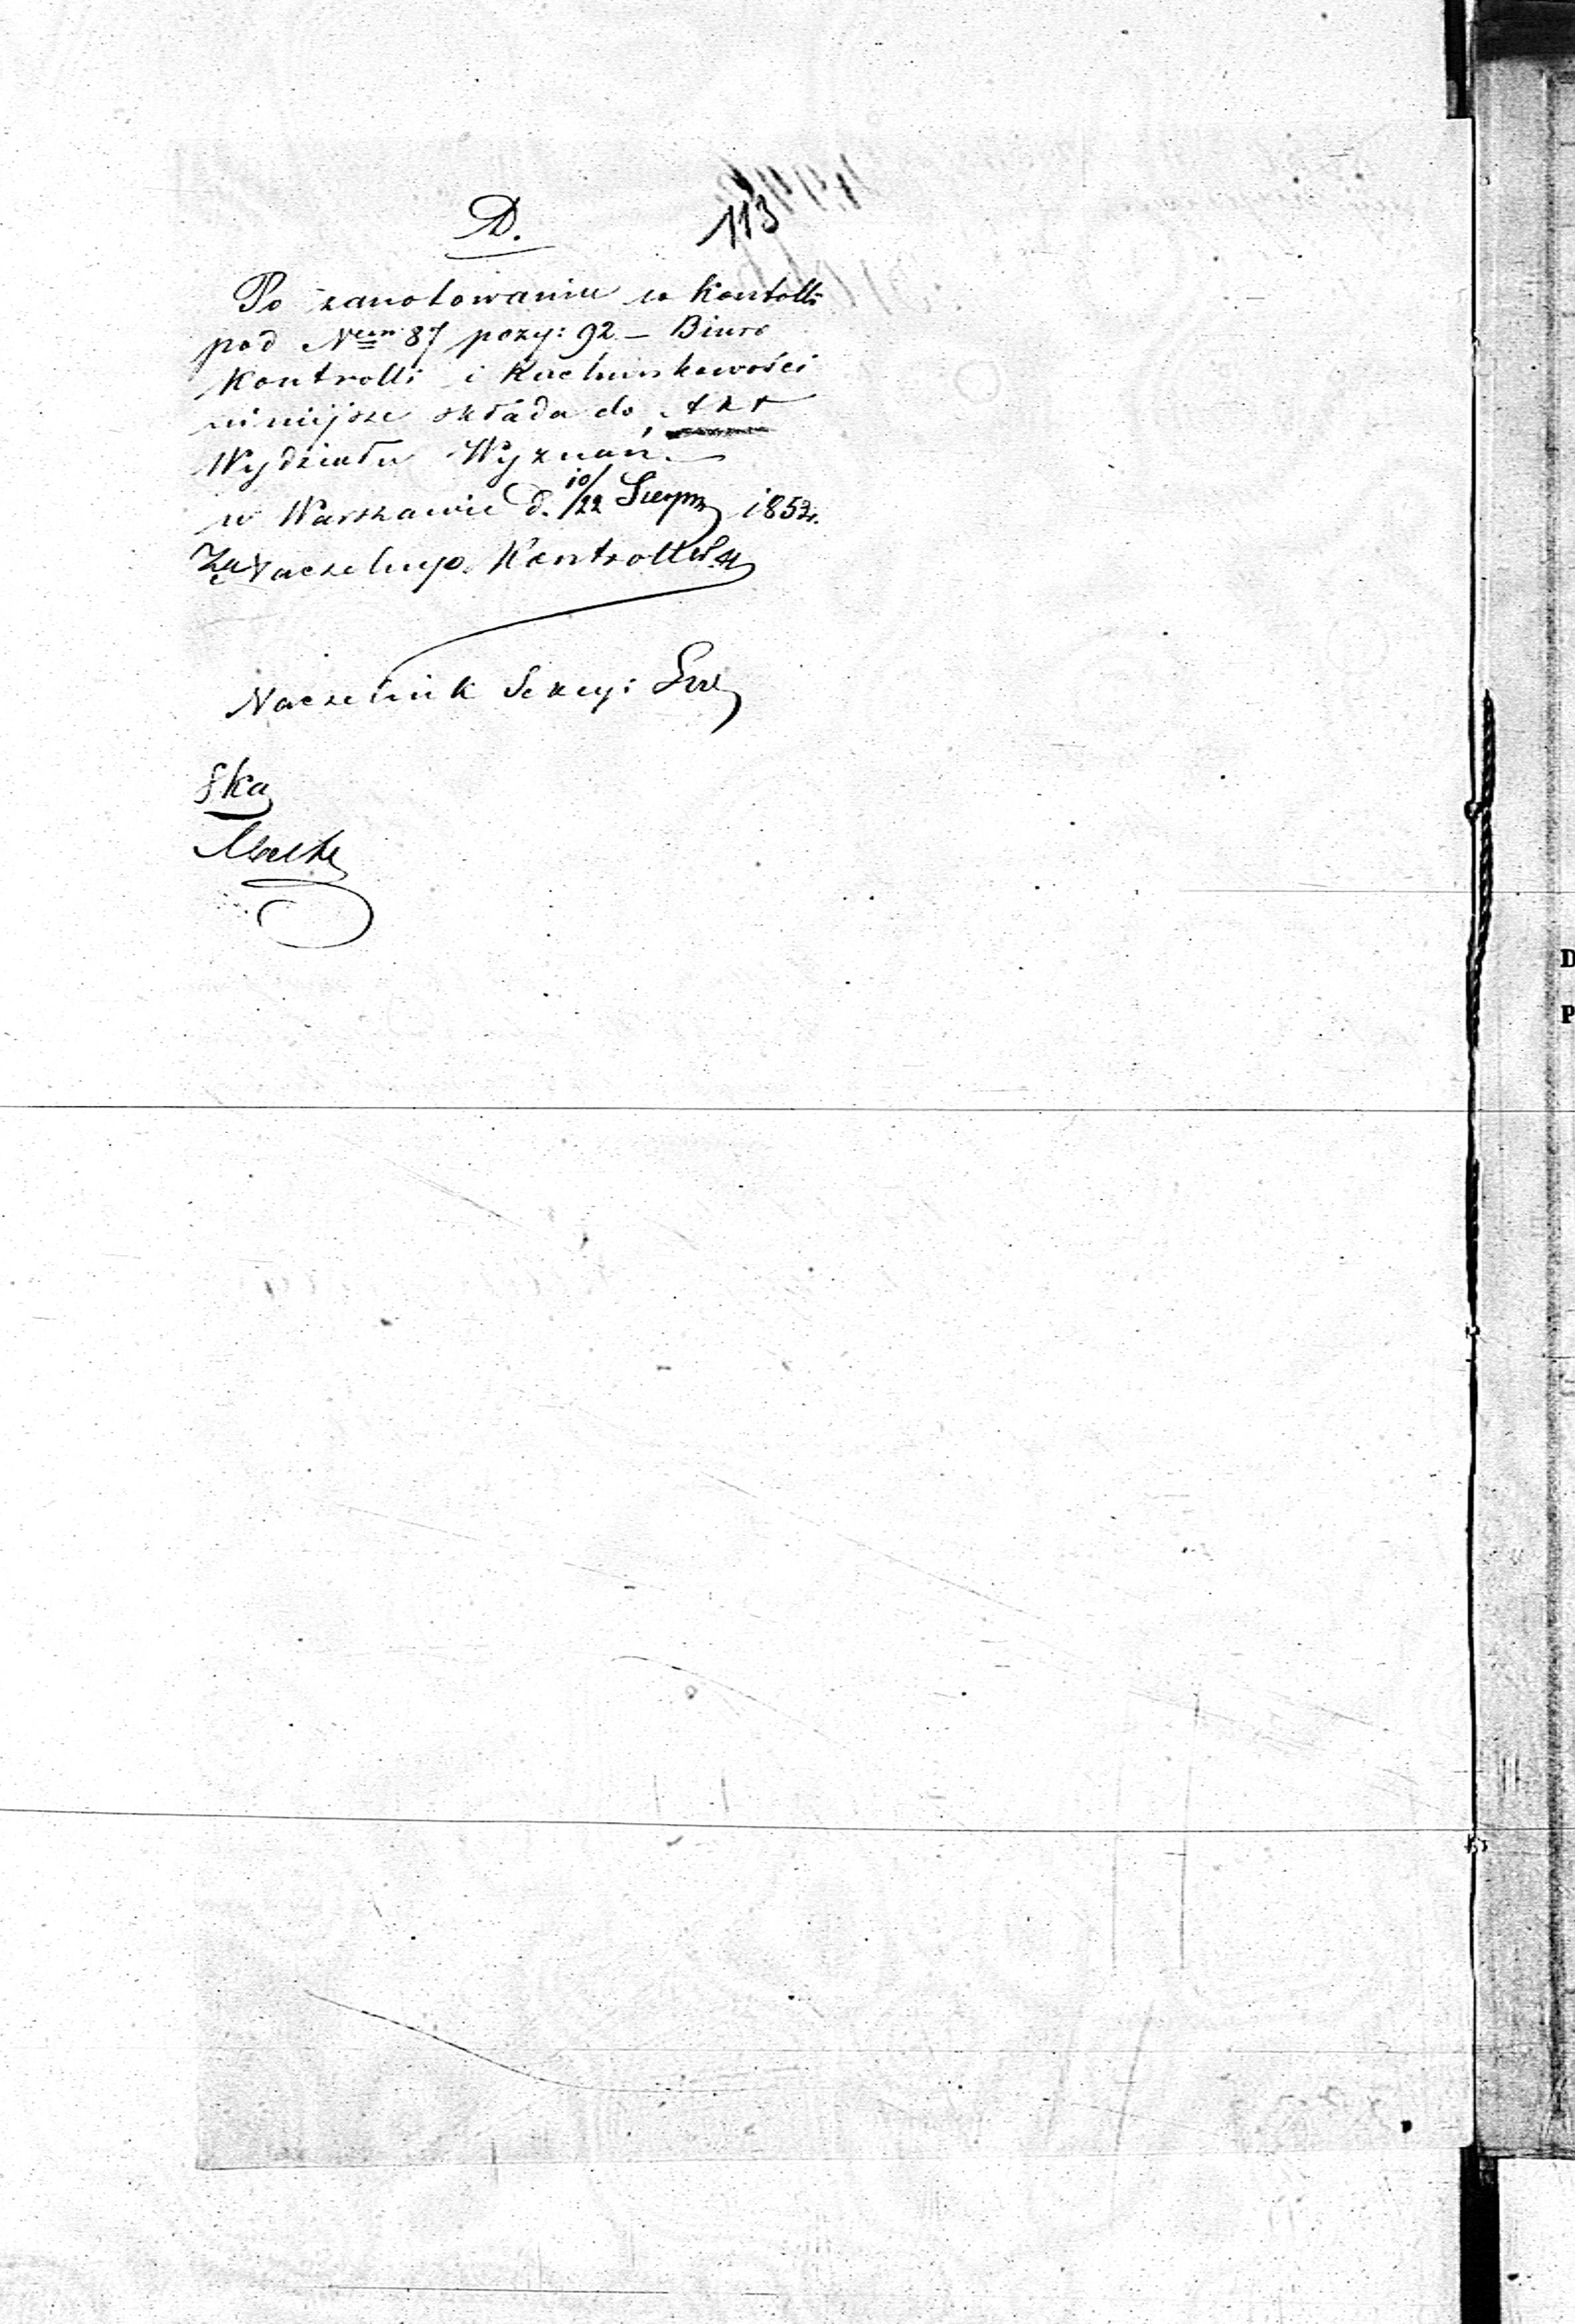 D.
113
Po zanotowaniu w Kontolli
pod Nem 87 pozy: 92 – Biuro
Kontrolli i Rachunkowości
niniejsze składa do Akt
Wydziału Wyznań. –
w Warszawie d. 10/22 Sierpn 1853r.
Za Naczelnego Kontrollera
Naczelnik Sekcyi
Ska
D
P